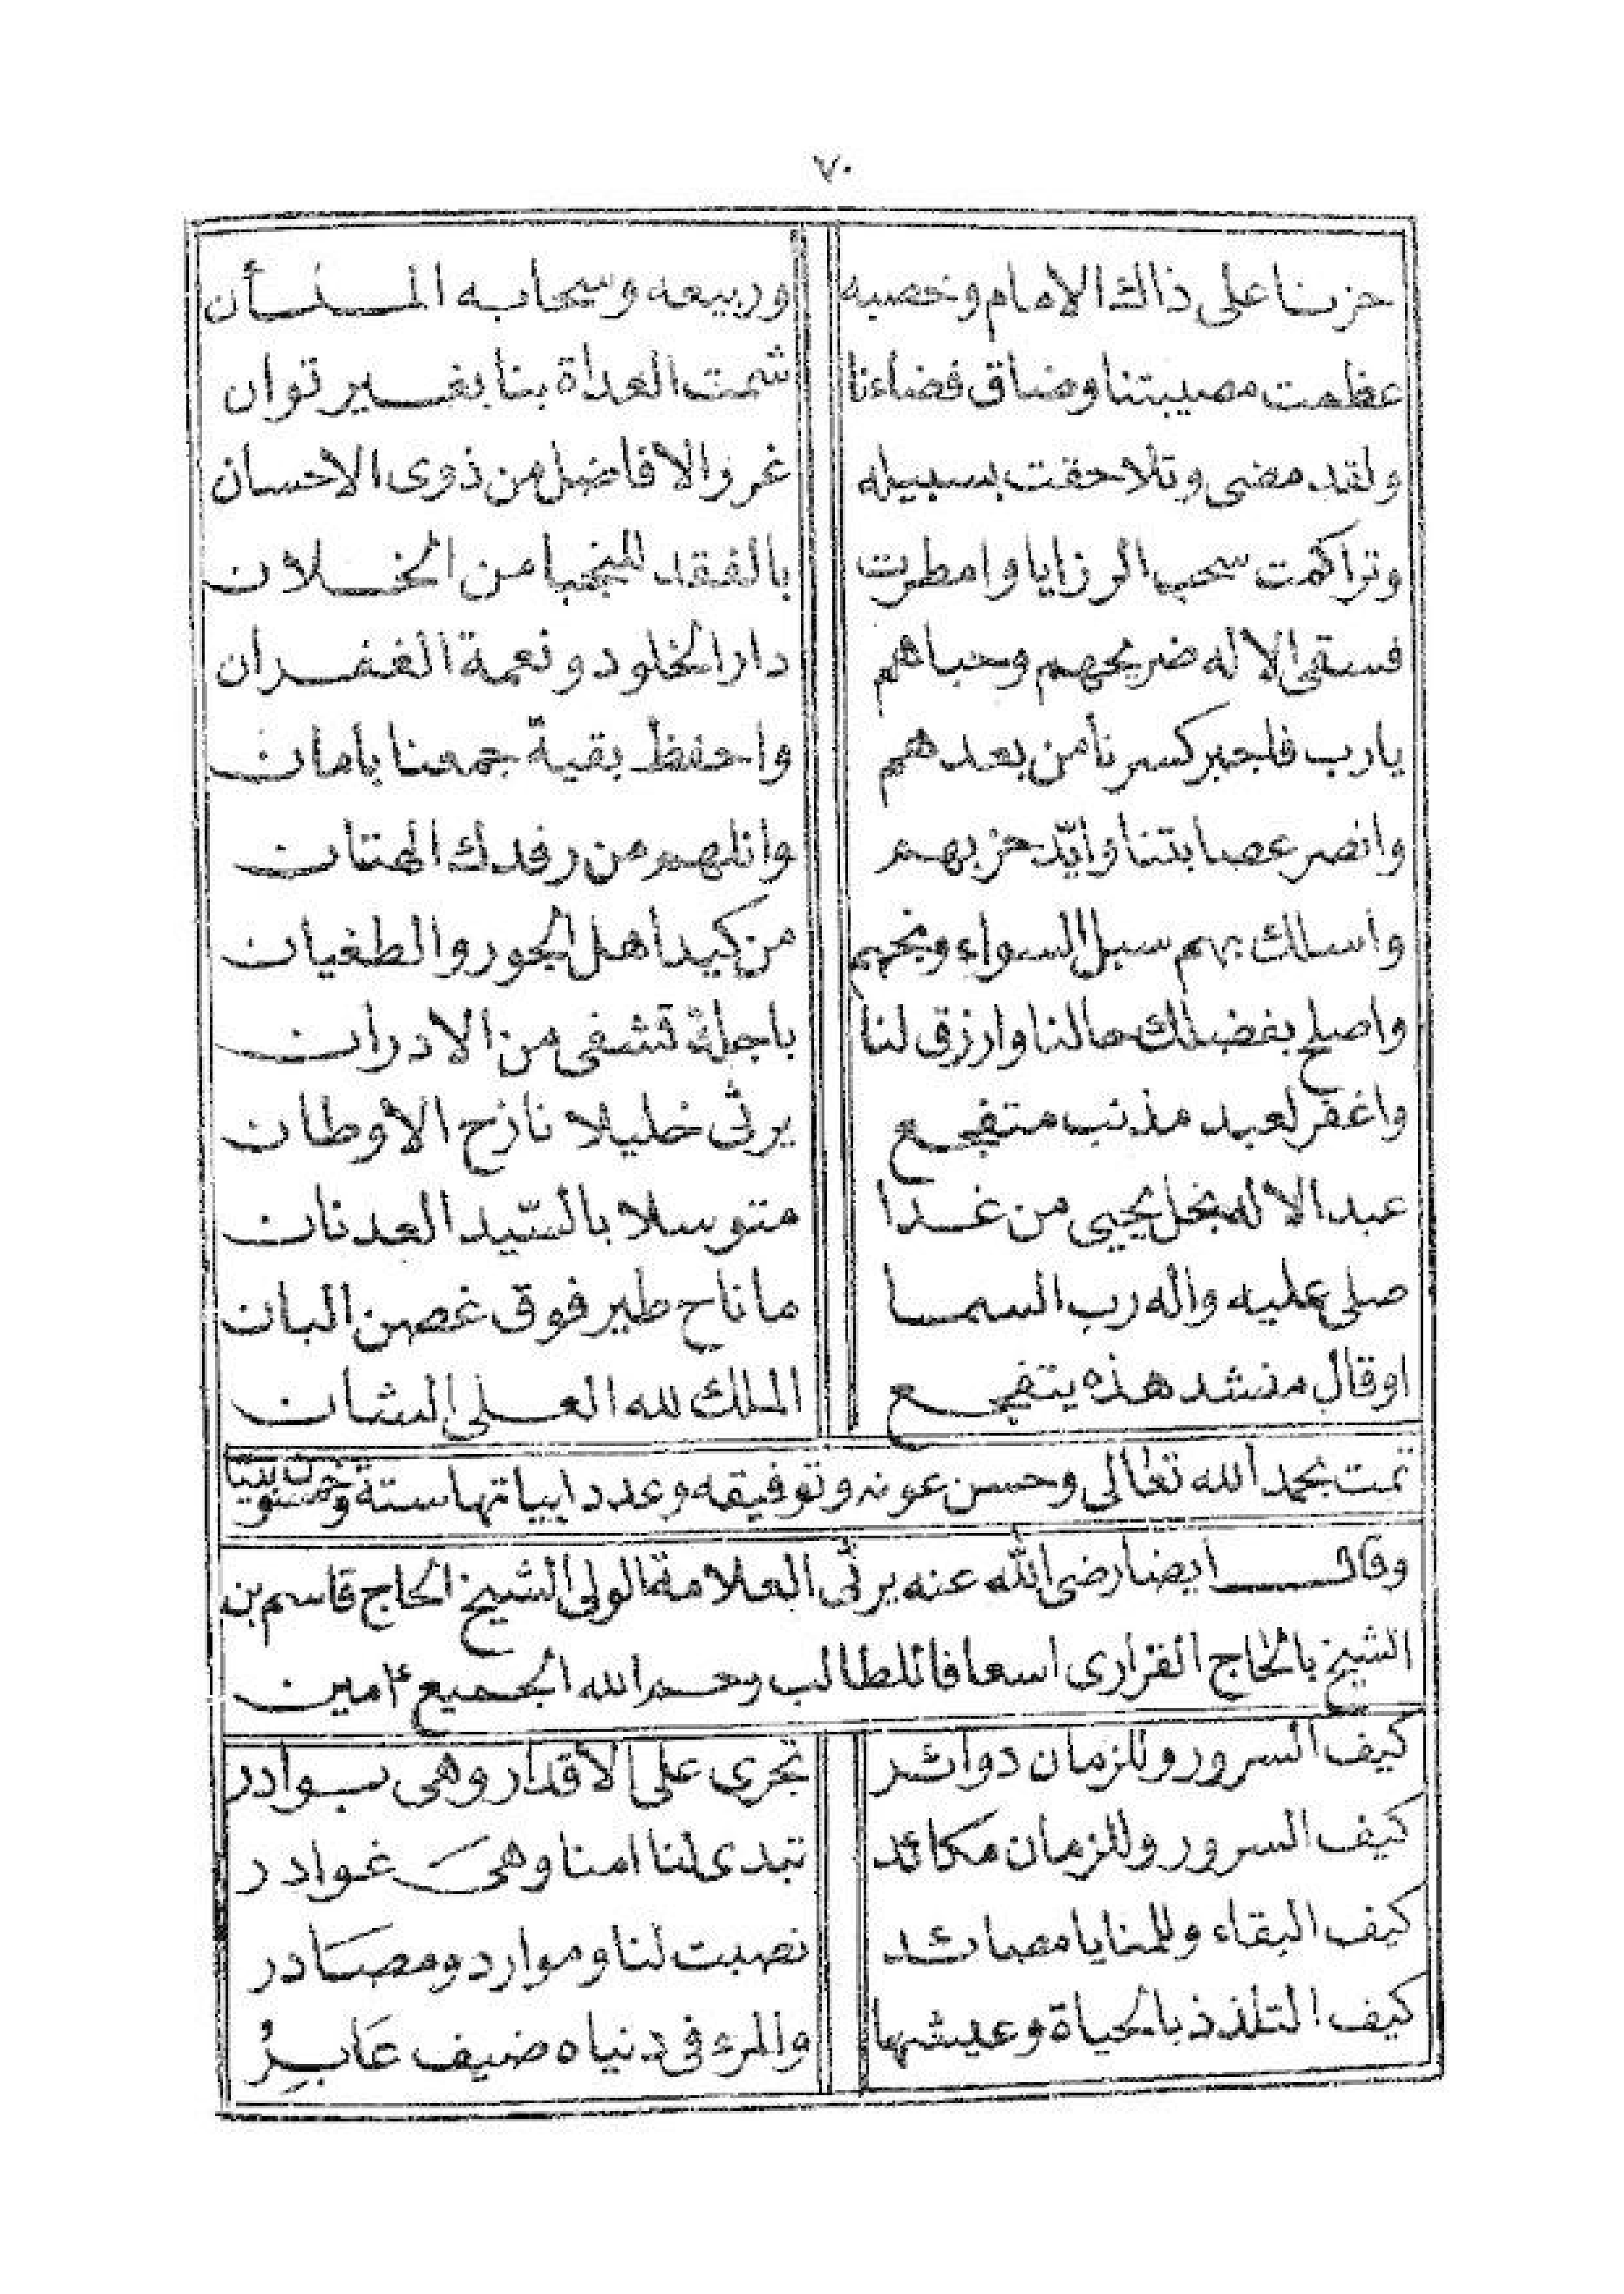 ٧٠
حزنا على ذاك الامام وخصبه وربيعه وسحابه الهتان
عظمت مصيبتنا وضاق فضاءنا شمت العداة بنا بغير توان
ولقد مضى وتلاحقت بسبيله غرر الافاضل من ذوى الاحسان
وتراكمت سحب الرزايا وامطرت بالفقد للنجبا من الخلان
فسقى الاله ضريحهم وحباهم دار الخلود ونعمة الغفران
يارب فاجبر كسرنا من بعدهم واحفظ بقية جمعنا بامان
وانصر عصابتنا وايّد حزبهم وانلهم من رفدك الهتان
واسلك بهم سبل السواء ونجهم من كيد اهل الجور والطغيان
واصلح بفضلك حالنا وارزق لنا باجلة تشفى من الادران
واغفر لعبد مذنب متفجع يرثى خليلا نازح الاوطان
عبد الاله نجل يحيى من غدا متوسلا بالسّيد العدنان
صلى عليه واله رب السما ما ناح طير فوق غصن البان
اوقال منشد هذه يتفجع الملك لله العلى الشان
تمت بحمد الله تعالى وحسن عونه وتوفيقه وعدد ابياتها ستة وخمسون بيتا
وقال ايضا رضى الله عنه يرثى العلامة الولى الشيخ الحاج قاسم بن
الشيخ بالحاج القرارى اسعافا للطالب رحم الله الجميع ءامين
كيف السرور وللزمان دوائر تجرى على الاقدار وهى بوادر
كيف السرور وللزمان مكائد تبدى لنا امنا وهىَ غوادر
كيف البقاء وللمنايا مصائد نصبت لنا وموارد ومصَادر
كيف التلذذ بالحياة وعيشها والمرء فى دنياه ضيف عَابِرُ